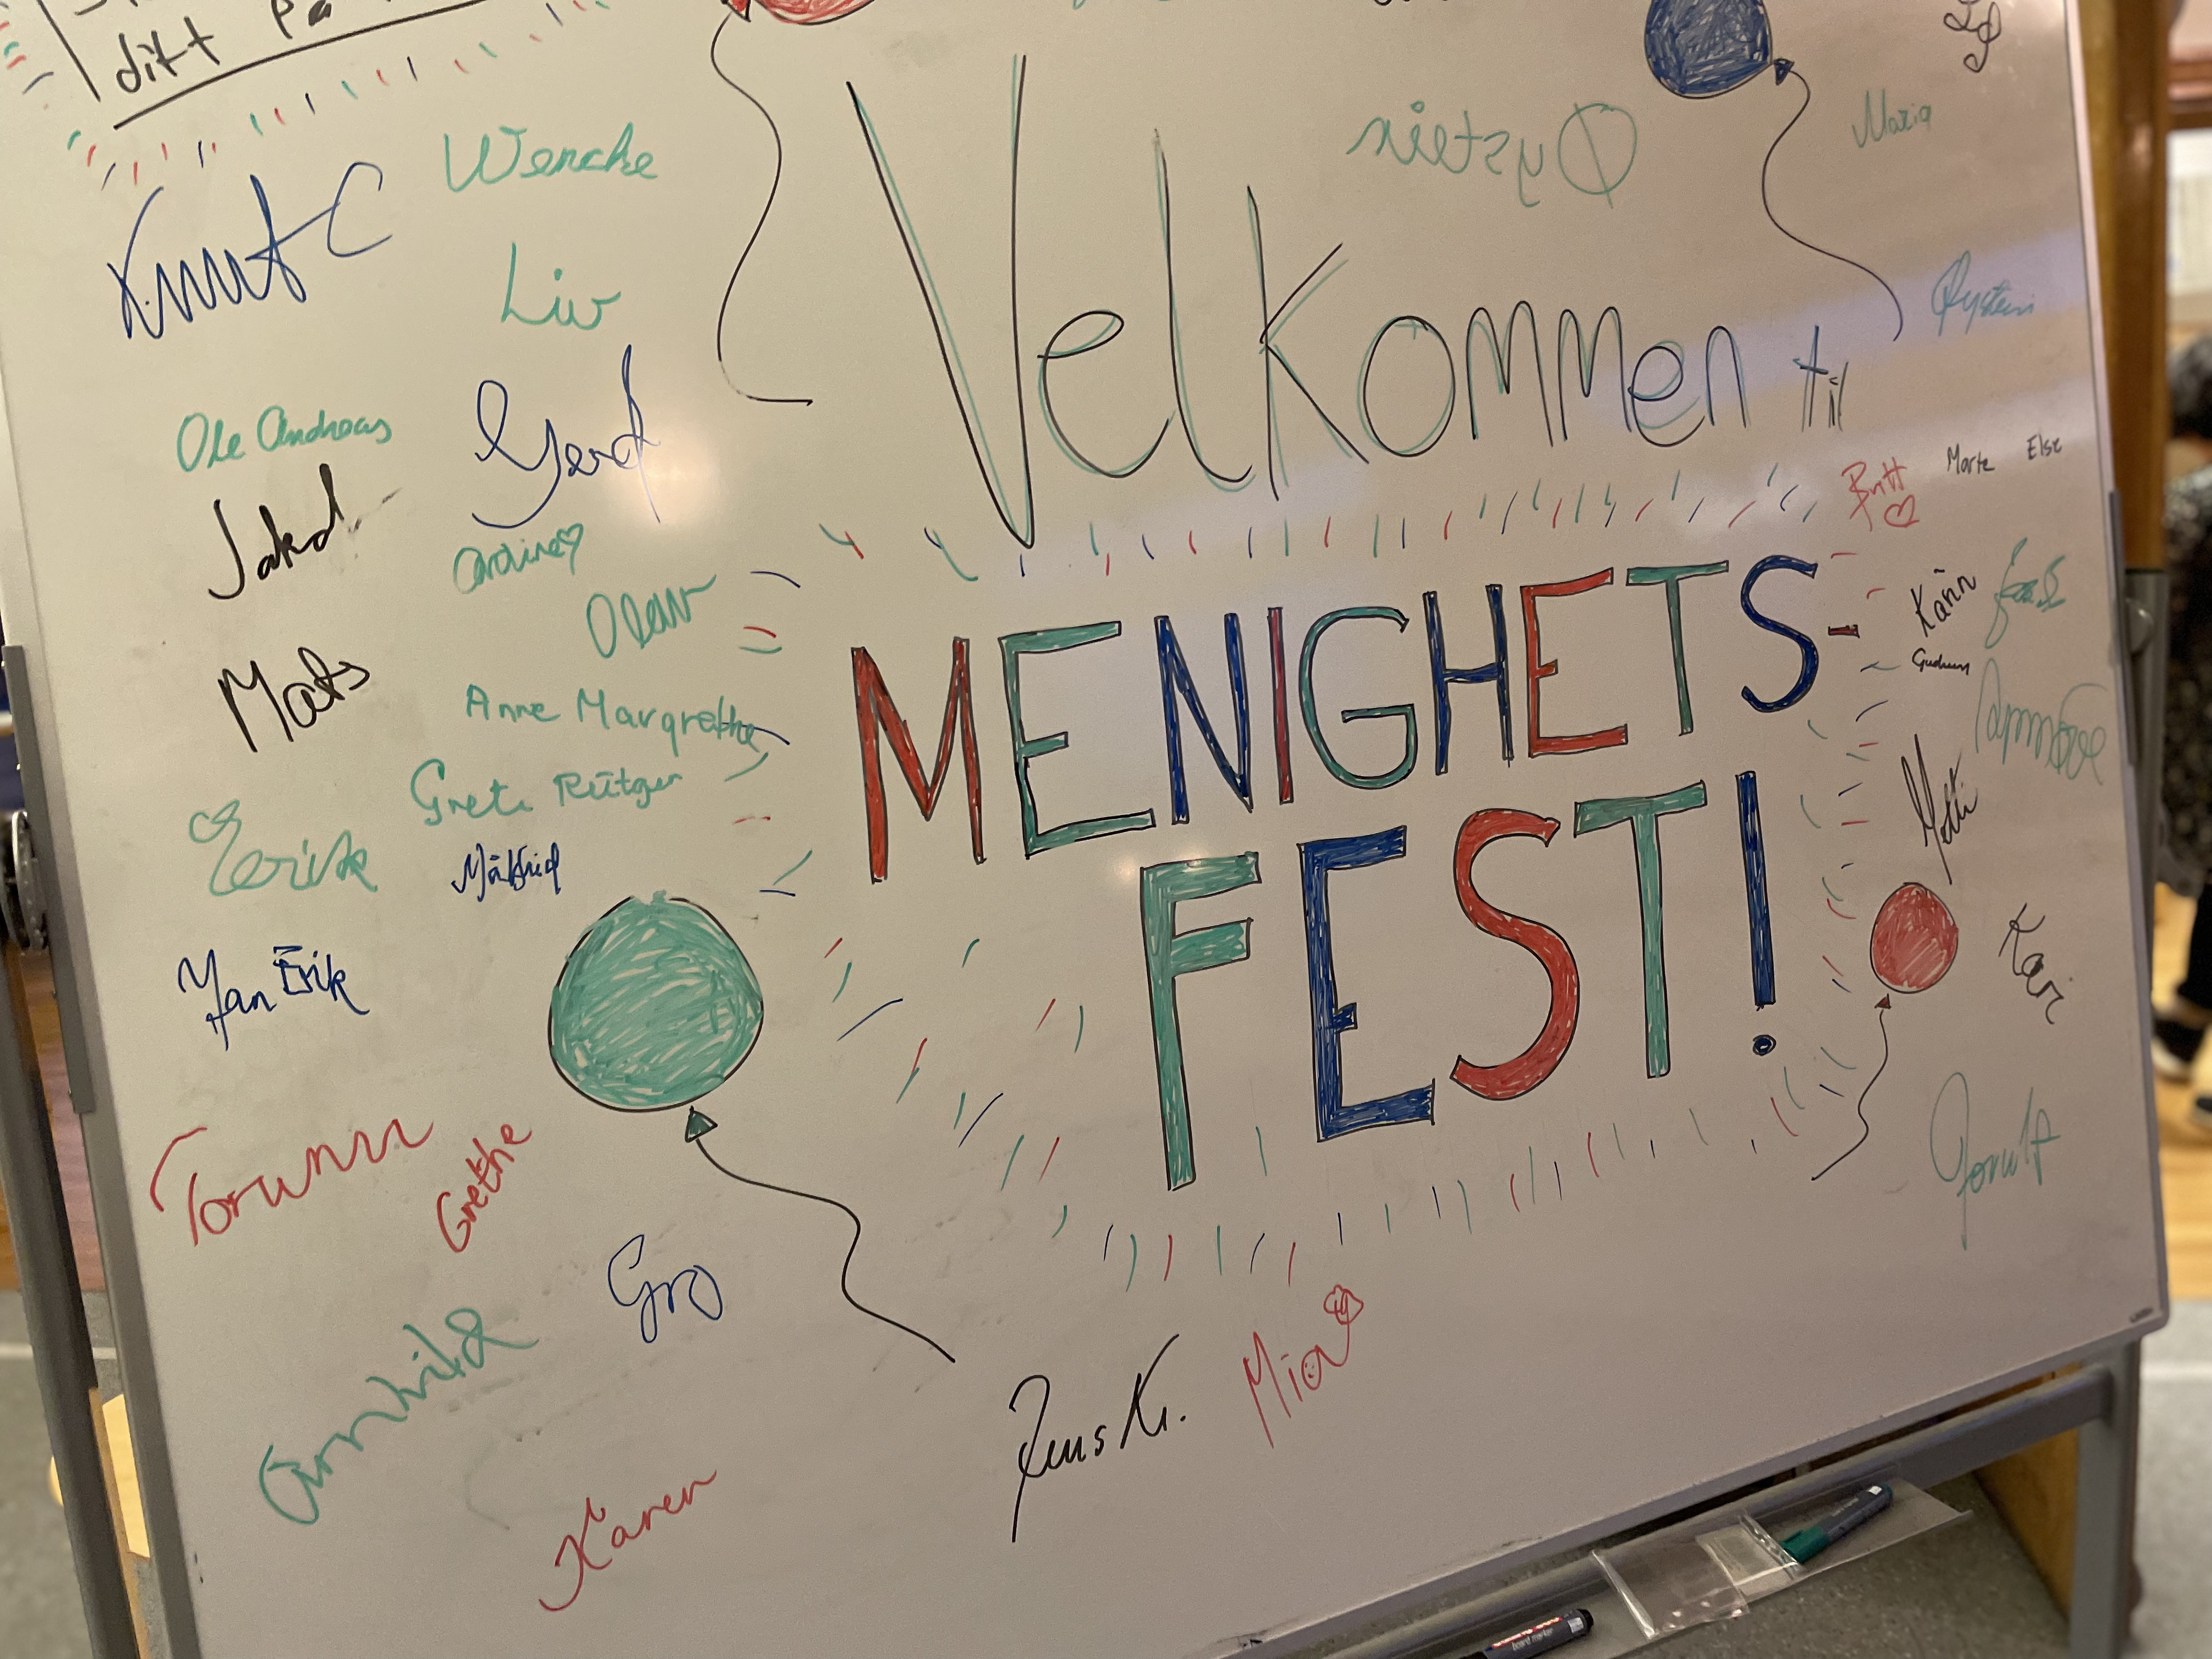 ditt på
Velkommen til
MENIGHETS-
FEST!
Knut C
Wenche
Liv
Ole Andreas
Gerd
Jakob
Caroline
Olav
Mats
Anne Margrethe
Grete Rütger
Eirik
Målfrid
Jan Erik
Torunn
Grethe
Gro
Gunnhild
Karen
Jens Kr.
Mia
Øystein
Maria
Øystein
Britt
Marte
Else
Karin
Gudrun
Synnøve
Kari
board marker